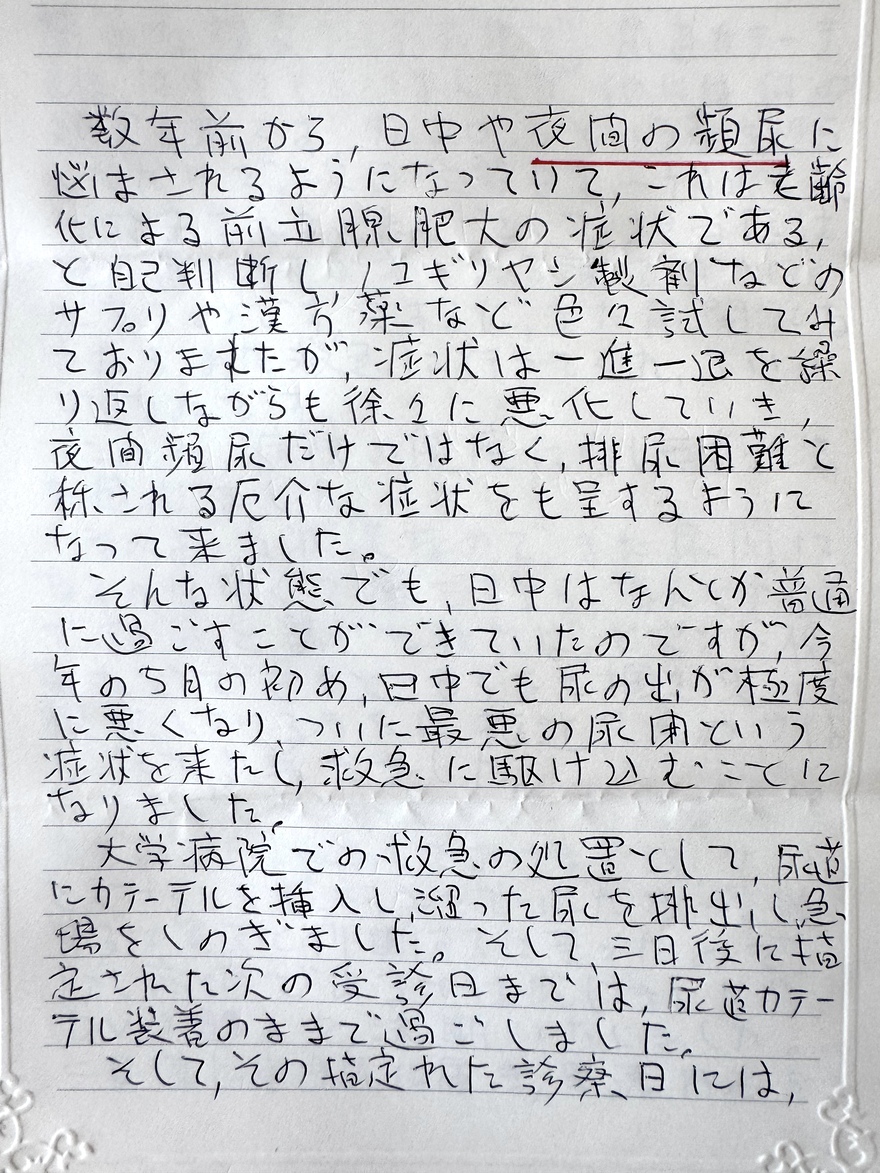 数年前から、日中や夜間の頻尿に
悩まされるようになっていて、これは老齢
化による前立腺肥大の症状である、
と自己判断し、ノコギリヤシ製剤などの
サプリや漢方薬など色々試してみ
ておりましたが、症状は一進一退を繰
り返しながらも徐々に悪化していき、
夜間頻尿だけではなく、排尿困難と
称される厄介な症状をも呈するように
なって来ました。
そんな状態でも、日中はなんとか普通
に過ごすことができていたのですが、今
年の5月の初め、日中でも尿の出が極度
に悪くなり、ついに最悪の尿閉という
症状を来たし、救急に駆け込むことに
なりました。
大学病院での救急の処置として、尿道
にカテーテルを挿入し、溜った尿を排出し、急
場をしのぎました。そして、三日後に指
定された次の受診日までは、尿道カテー
テル装着のままで過ごしました。
そして、その指定れた診察日には、